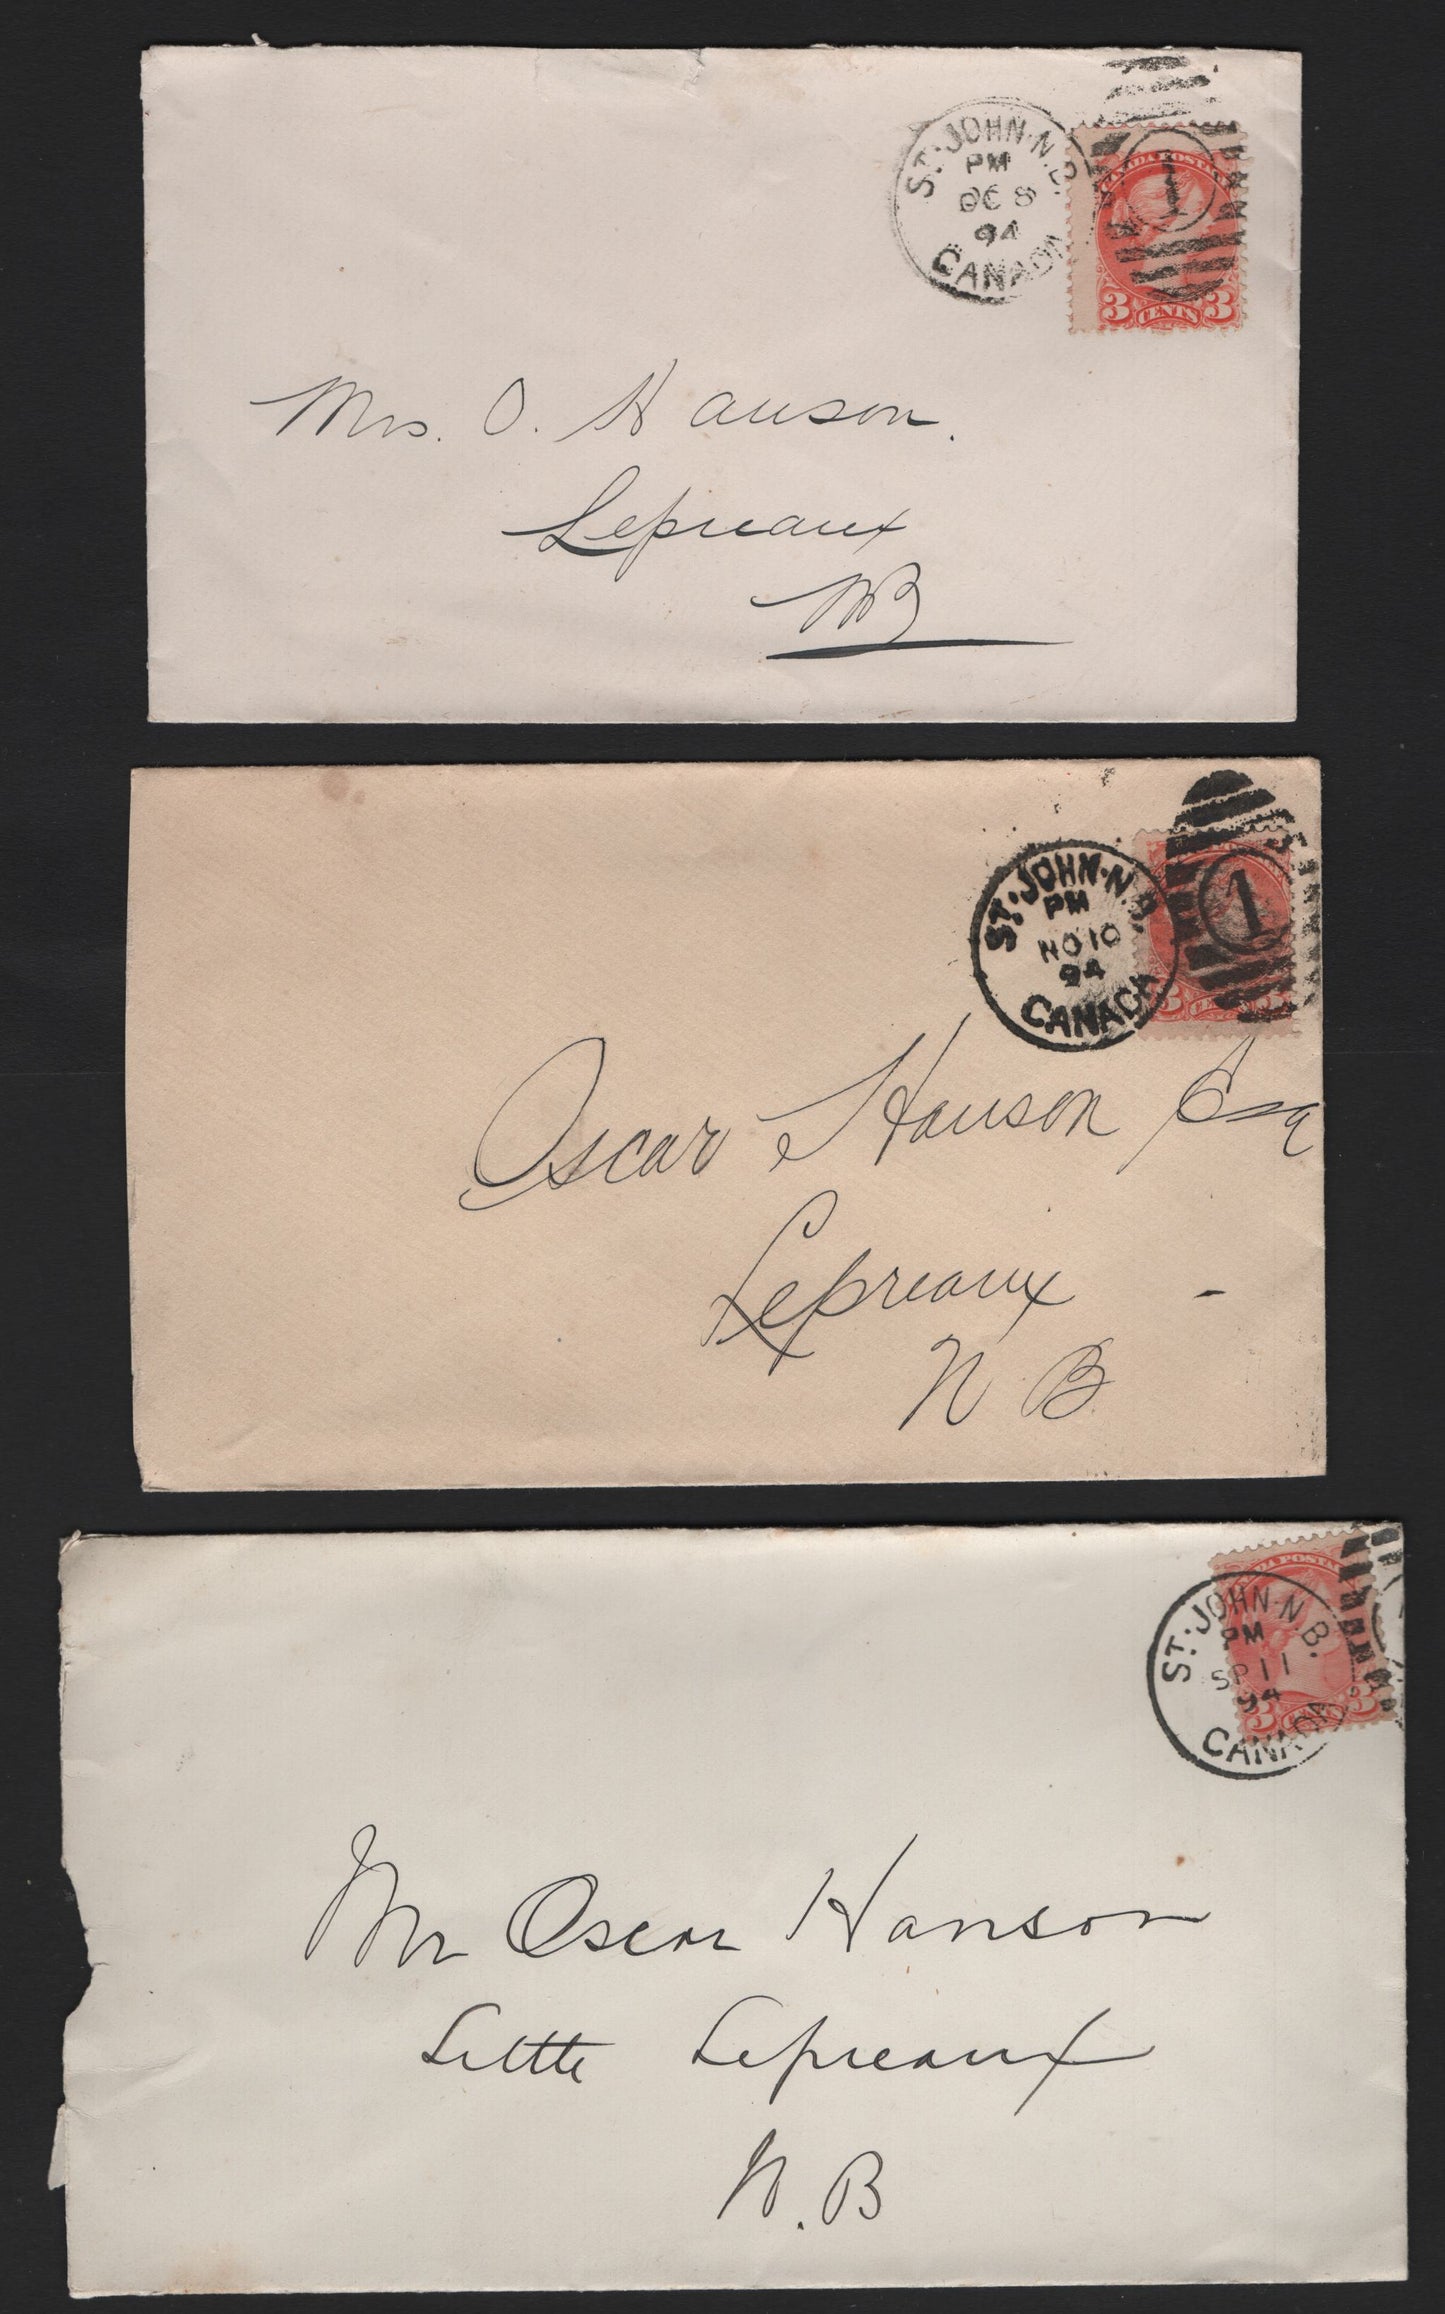 ST. JOHN. N. B.
PM
OC 8
94
CANADA
1
CANADA POSTAGE
3 CENTS 3
Mrs. O. Hanson.
Lepreaux
NB
ST. JOHN. N. B.
PM
NO 10
94
CANADA
1
3 CENTS 3
Oscar Hanson Esq
Lepreaux
N B
CANADA POSTAGE
ST. JOHN. N. B.
PM
SP 11
94
CANADA
3 CENTS 3
Mr Oscar Hanson
Little Lepreaux
N. B